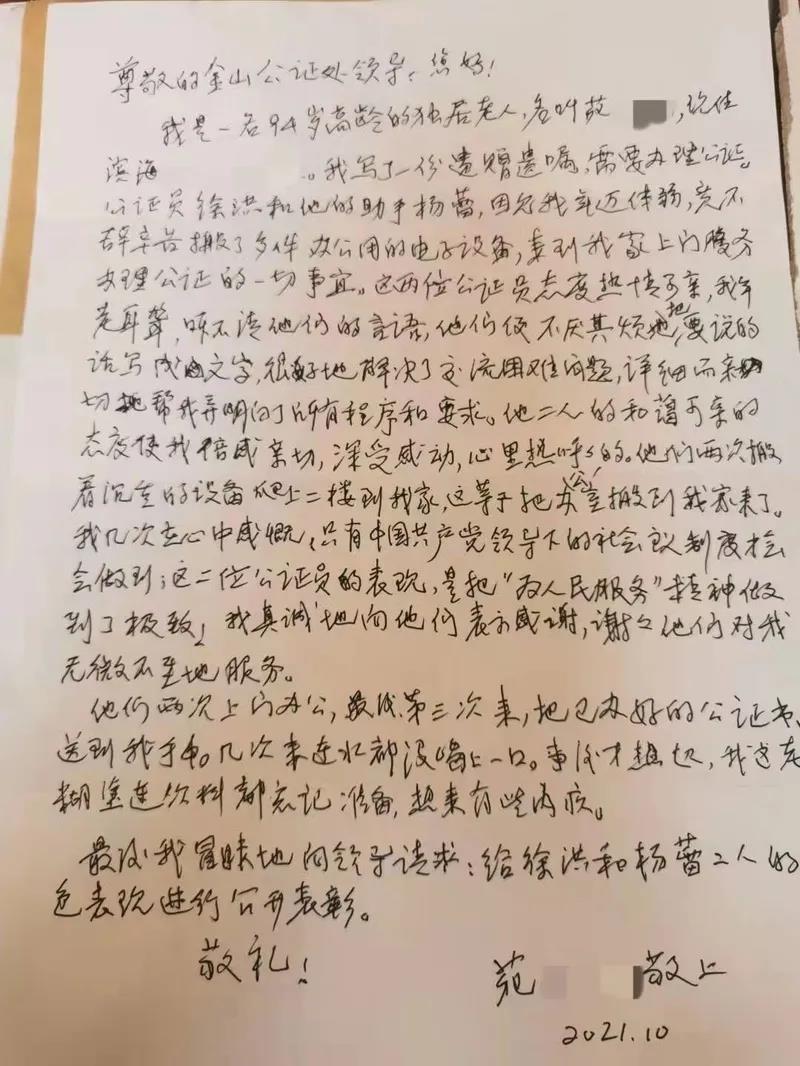 尊敬的金山公证处领导：您好！
我是一名94岁高龄的独居老人，名叫范，现住
滨海。我写了一份遗赠遗嘱，需要办理公证。
公证员徐洪和他的助手杨蕾，因为我年迈体弱，竟不
辞辛苦搬了多件办公用的电子设备，来到我家上门服务
办理公证的一切事宜。这两位公证员态度热情可亲，我年
老耳聋，听不清他们的言语，他们便不厌其烦地要说的
话写成文字，很好地解决了交流困难问题，详细而亲
切地帮我弄明白了所有程序和要求。他二人的和蔼可亲的
态度使我倍感亲切，深受感动，心里热呼呼的。他们两次搬
着沉重的设备爬上二楼到我家，这等于把办公室搬到我家来了。
我几次在心中感慨，只有中国共产党领导下的社会主义制度才会
会做到；这二位公证员的表现，是把“为人民服务”精神做
到了极致！我真诚地向他们表示感谢，谢谢他们对我
无微不至地服务。
他们两次上门办公，最后第三次来，把已办好的公证书
送到我手中。几次来连水都没喝上一口。事后才想起，我这老
糊涂连饮料都忘记准备，想来有些内疚。
最后我冒昧地向领导请求：给徐洪和杨蕾二人的
色表现进行公开表彰。
敬礼！
范 敬上
2021.10